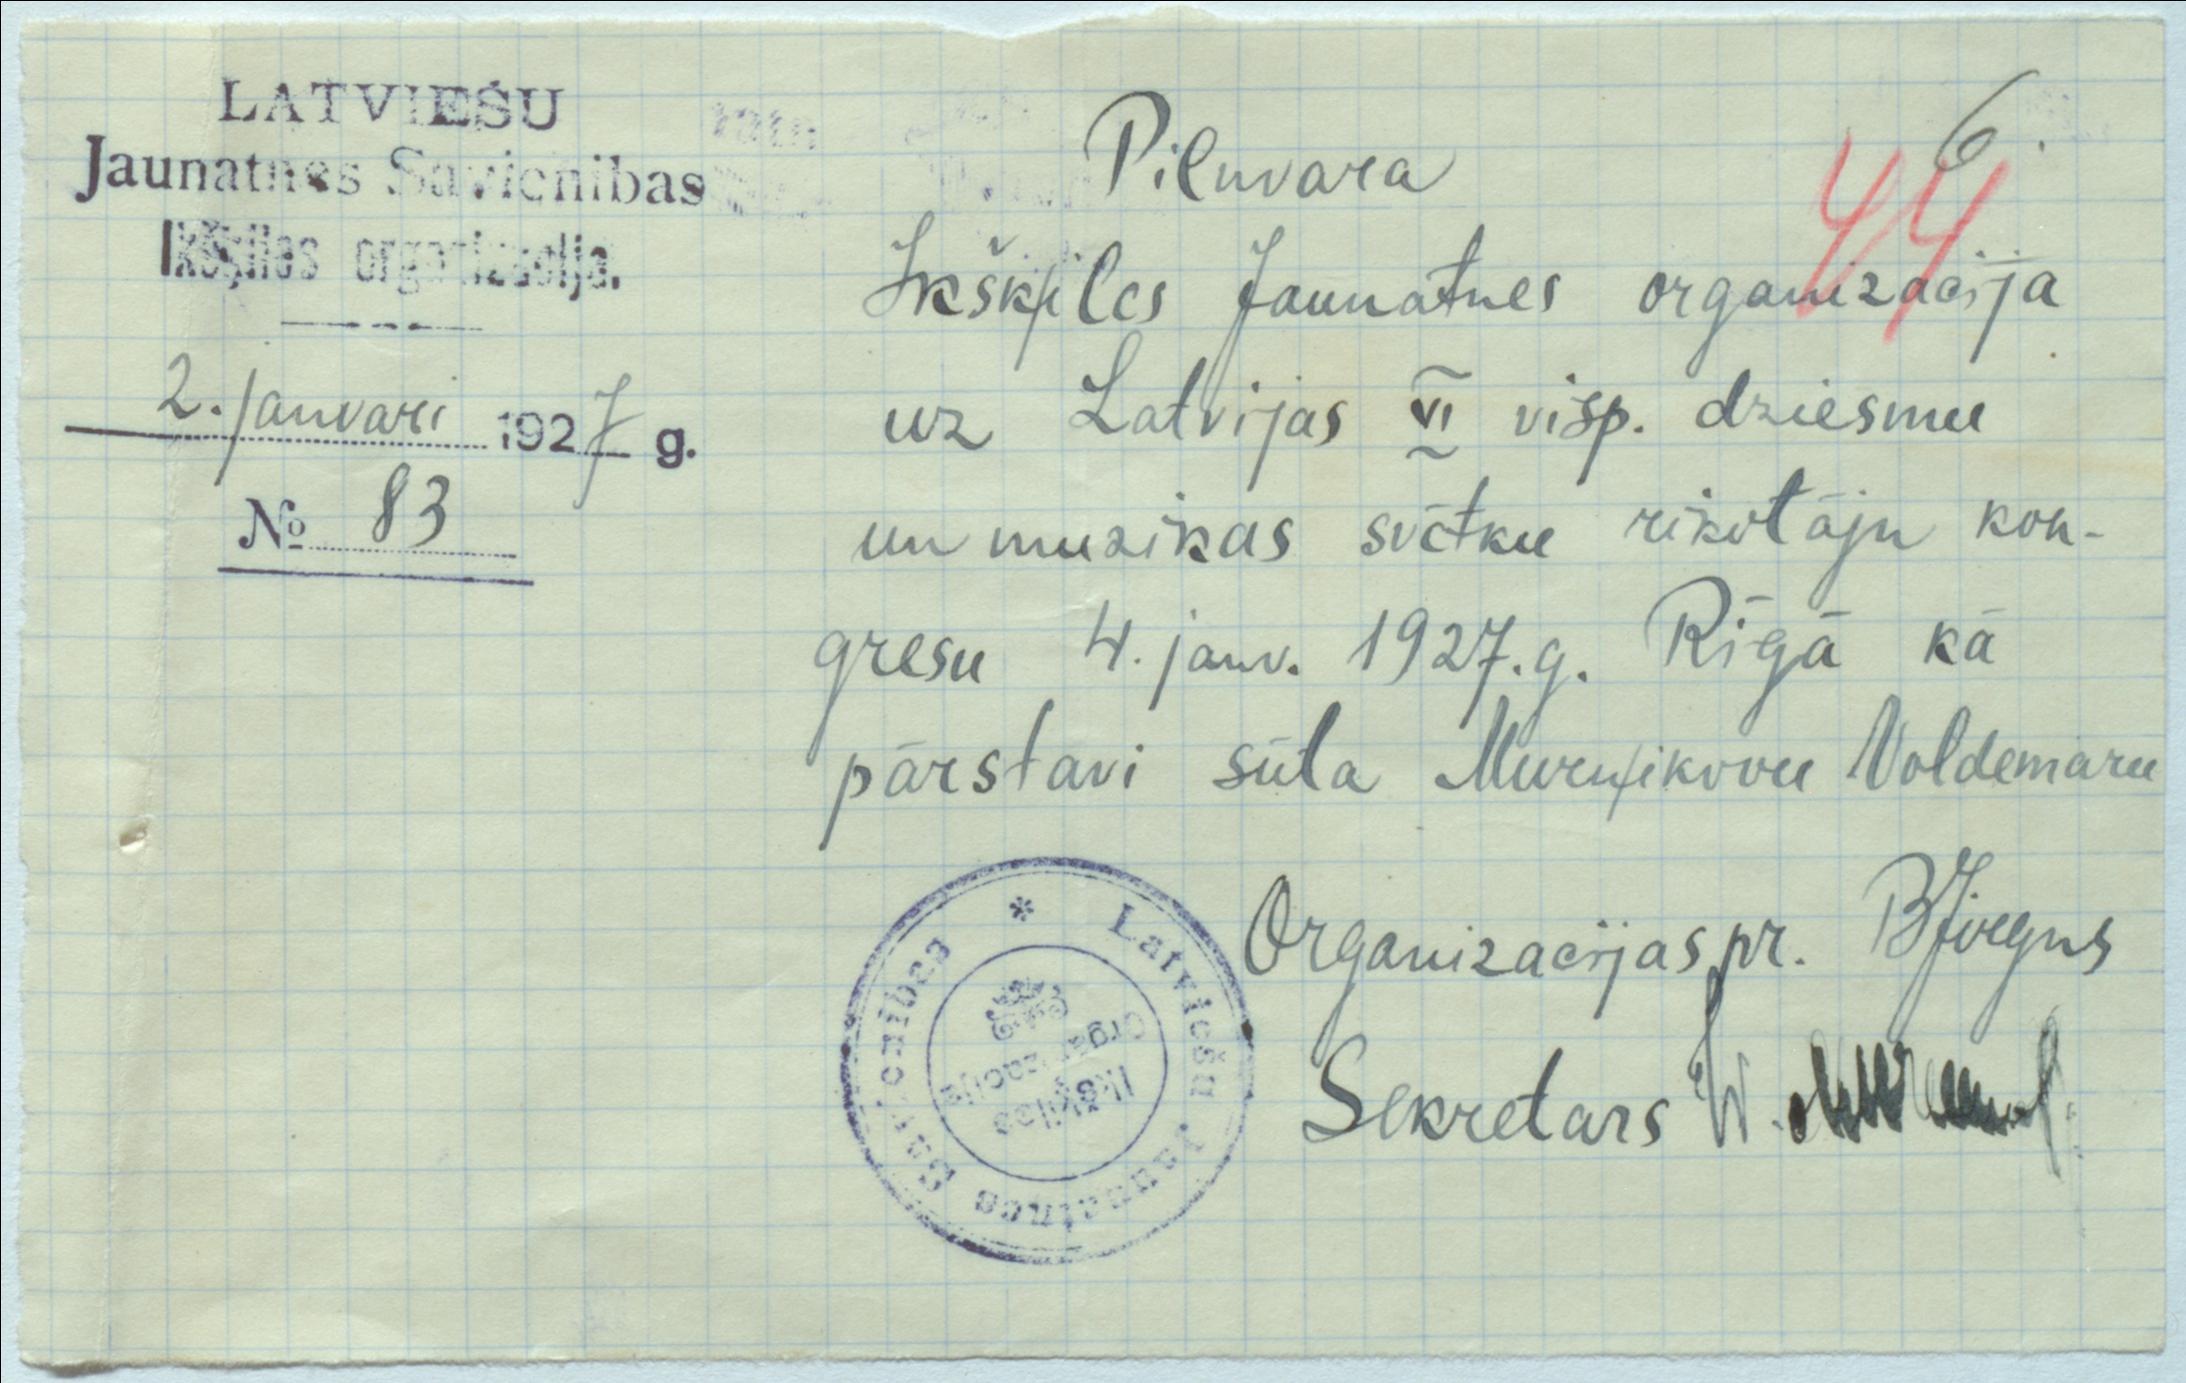 LATVIEŠU
Jaunatnes Savienibas
Ikšķiles organizacija.
2. janvari 1927 g.
№ 83
6.
44
Pilnvara
Ikšķiles Jaunatnes organizacija
uz Latvijas VI visp. dziesmu
un muzikas svētku rikotāju kon-
gresu 4. janv. 1927. g. Rīgā kā
pārstavi sūta Murņikovu Voldemaru
Organizacijas pr.
Sekretars
* Latviešu Jaunatnes Savienibas
Ikšķiles
Organizacija